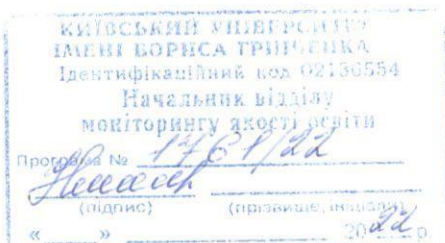 КИЇВСЬКИЙ УНІВЕРСИТЕТ
ІМЕНІ БОРИСА ГРІНЧЕНКА
Ідентифікаційний код 02136554
Начальник відділу
моніторингу якості освіти
Програма № 1761/22
(підпис) (прізвище, ініціали)
« » 2022 р.